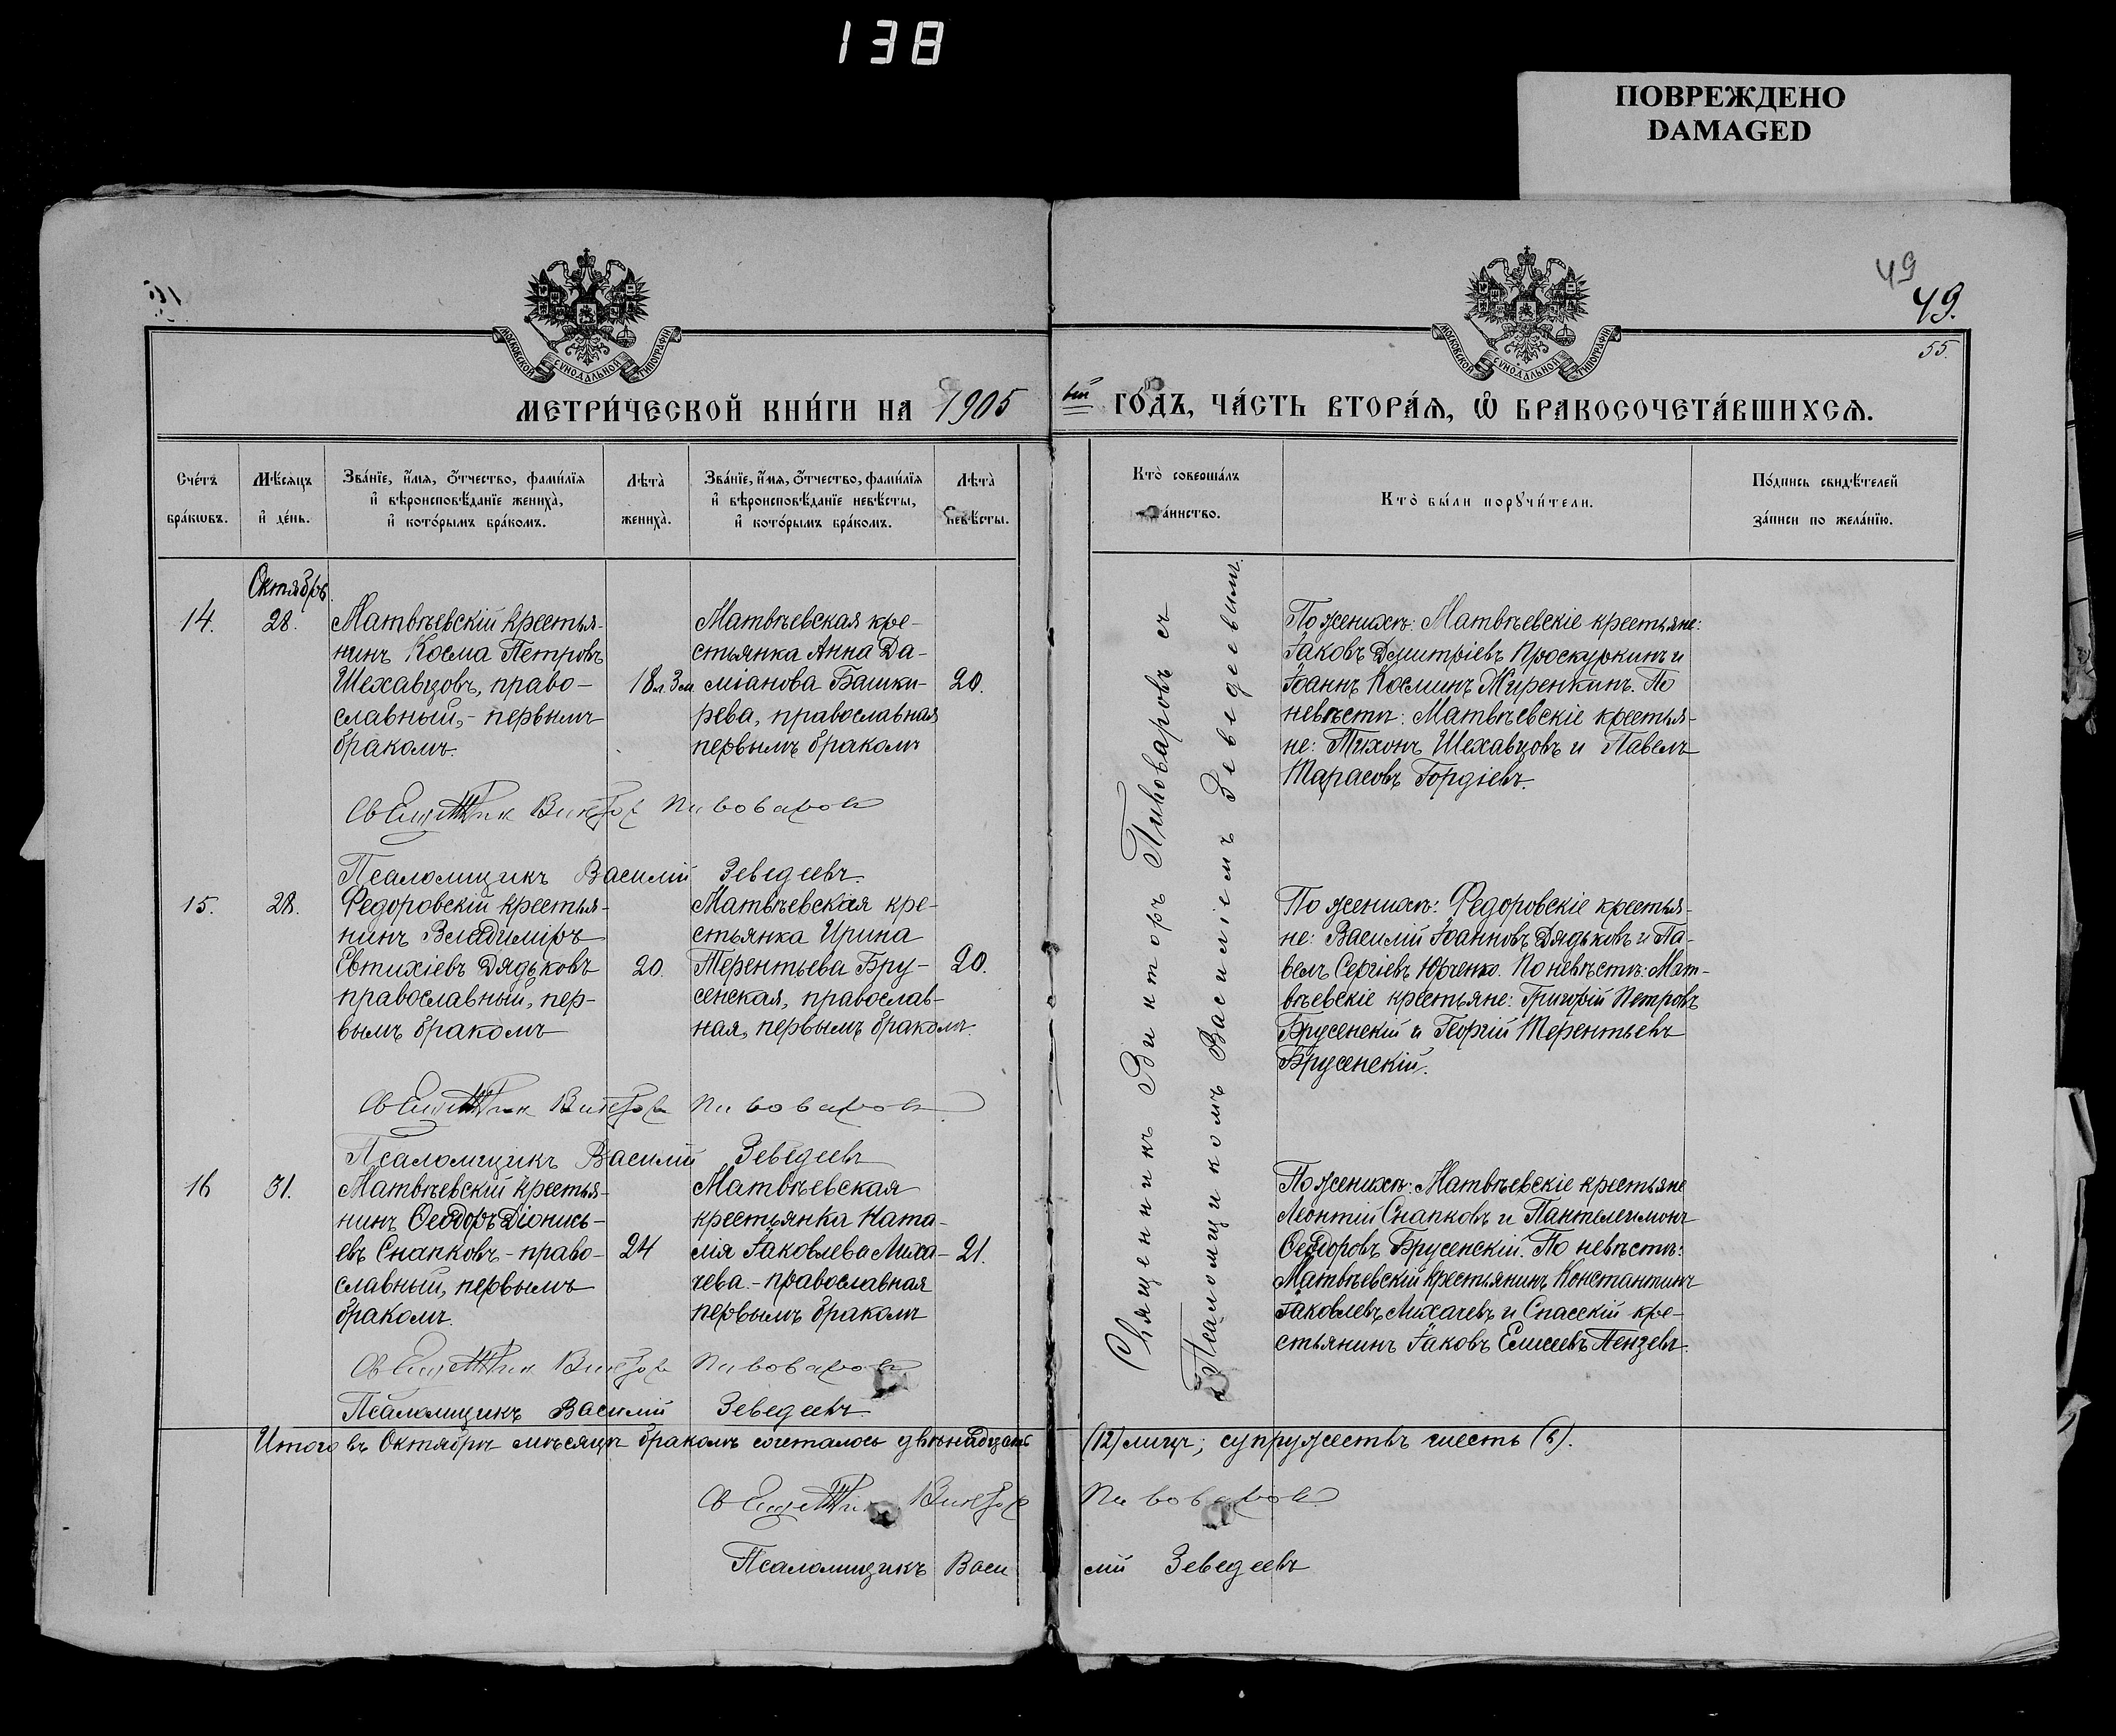 138
ПОВРЕЖДЕНО
DAMAGED
49
49.
55.
МОСКОВСКОЙ СѴНОДАЛЬНОЙ ТИПОГРАФІИ
МОСКОВСКОЙ СѴНОДАЛЬНОЙ ТИПОГРАФІИ
МЕТРИ́ЧЕСКОЙ КНИ́ГИ НА 1905
вый ГО́ДЪ, ЧА́СТЬ ВТОРА́Ѧ, Ѽ БРАКОСОЧЕТА́ВШИХСѦ.
Сче́тъ
бра́кѡвъ.
Мѣ́сѧцъ
и҆ де́нь.
Зва́нїе, и҆́мѧ, ѻ҆́тчество, фами́лїѧ
и҆ вѣроисповѣ́данїе жениха̀,
и҆ кото́рымъ бра́комъ.
Лѣта̀
жениха̀.
Зва́нїе, и҆́мѧ, ѻ҆́тчество, фами́лїѧ
и҆ вѣроисповѣ́данїе невѣ́сты,
и҆ кото́рымъ бра́комъ.
Лѣта̀
невѣ́сты.
Кто̀ соверша́лъ
аинство.
Кто̀ бы́ли порꙋчи́тели.
По́дпись свидѣ́телей
за́писи по жела́нїю.
Октябрь.
14.
28.
Матвѣевскій крестья-
нинъ Косма Петровъ
Шехавцовъ, право-
славный, - первымъ
бракомъ.
18 л. 3 м.
Матвѣевская кре-
стьянка Анна Да-
міанова Башки-
рева, православная
первымъ бракомъ
20.
Священникъ Викторъ Пивоваровъ
Псаломщикъ Василій Зеведеевъ.
15.
28.
Федоровскій крестья-
нинъ Владиміръ
Евтихіевъ Дядьковъ
православный, пер-
вымъ бракомъ
20.
Матвѣевская кре-
стьянка Ирина
Терентьева Бру-
сенская, православ-
ная, первымъ бракомъ.
20.
Священникъ Викторъ Пивоваровъ
Псаломщикъ Василій Зеведеевъ
16
31.
Матвѣевскій крестья-
нинъ Ѳеодоръ Діонись-
евъ Снапковъ - право-
славный, первымъ
бракомъ.
24
Матвѣевская
крестьянка Ната-
лія Іаковлева Лиха-
чева. - православная
первымъ бракомъ
21.
Священникъ Викторъ Пивоваровъ
Псаломщикъ Василій Зеведеевъ.
Священникъ Викторъ Пивоваровъ съ
Псаломщикомъ Василіемъ Зеведеевымъ.
По женихѣ: Матвѣевскіе крестьяне:
Іаковъ Димитріевъ Проскуркинъ и
Іоаннъ Косминъ Жиренкинъ. По
невѣстѣ: Матвѣевскіе крестья-
не: Тихонъ Шехавцовъ и Павелъ
Тарасовъ Гордіевъ.
По женихѣ: Федоровскіе крестья-
не: Василій Іоанновъ Дядьковъ и Па-
велъ Сергіевъ Юрченко. По невѣстѣ: Мат-
вѣевскіе крестьяне: Григорій Петровъ
Брусенскій и Георгій Терентьевъ
Брусенскій.
По женихѣ: Матвѣевскіе крестьяне
Леонтій Снапковъ и Пантелеимонъ
Ѳеодоровъ Брусенскій. По невѣстѣ:
Матвѣевскій крестьянинъ Константинъ
Іаковлевъ Лихачевъ и Спасскій кре-
стьянинъ Іаковъ Елисеевъ Пензевъ.
Итого въ Октябрѣ мѣсяцѣ бракомъ сочеталось двѣнадцать (12) лицъ; супружествъ шесть (6).
Священникъ Викторъ Пивоваровъ
Псаломщикъ Василій Зеведеевъ